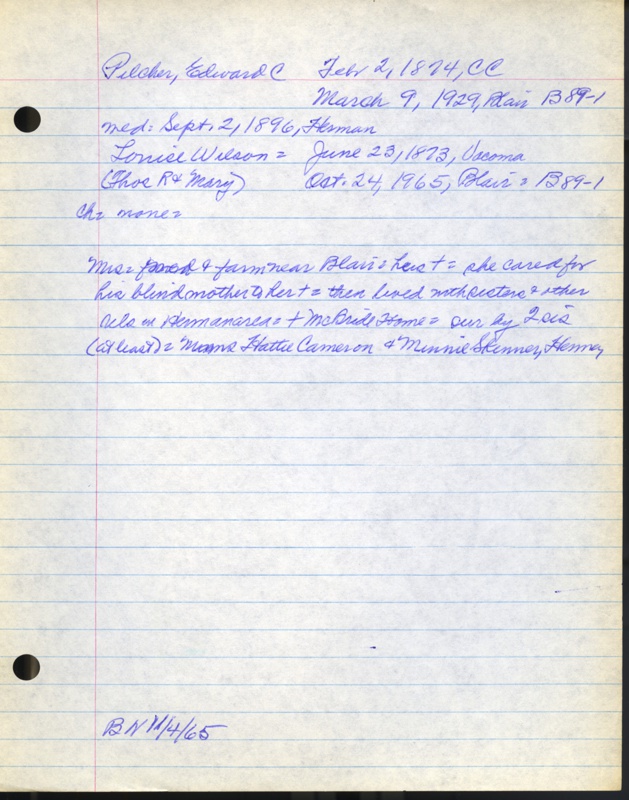 Pilcher, Edward C Febr 2, 1874, CC
March 9, 1929, Blair B89-1
med: Sept. 2, 1896, Herman
Louise Wilson = June 23, 1873, Vacoma
(Thos R & Mary) Oct. 24, 1965, Blair = B89-1
ch = none =
Mrs = & farm near Blair = his + = she cared for
his blind mother to her + = then lived with sisters & other
rels in Herman area = + McBride Home = sur by 2 sis
(at least) = Mmms Hattie Cameron & Minnie Skinner,
BN 11/4/65